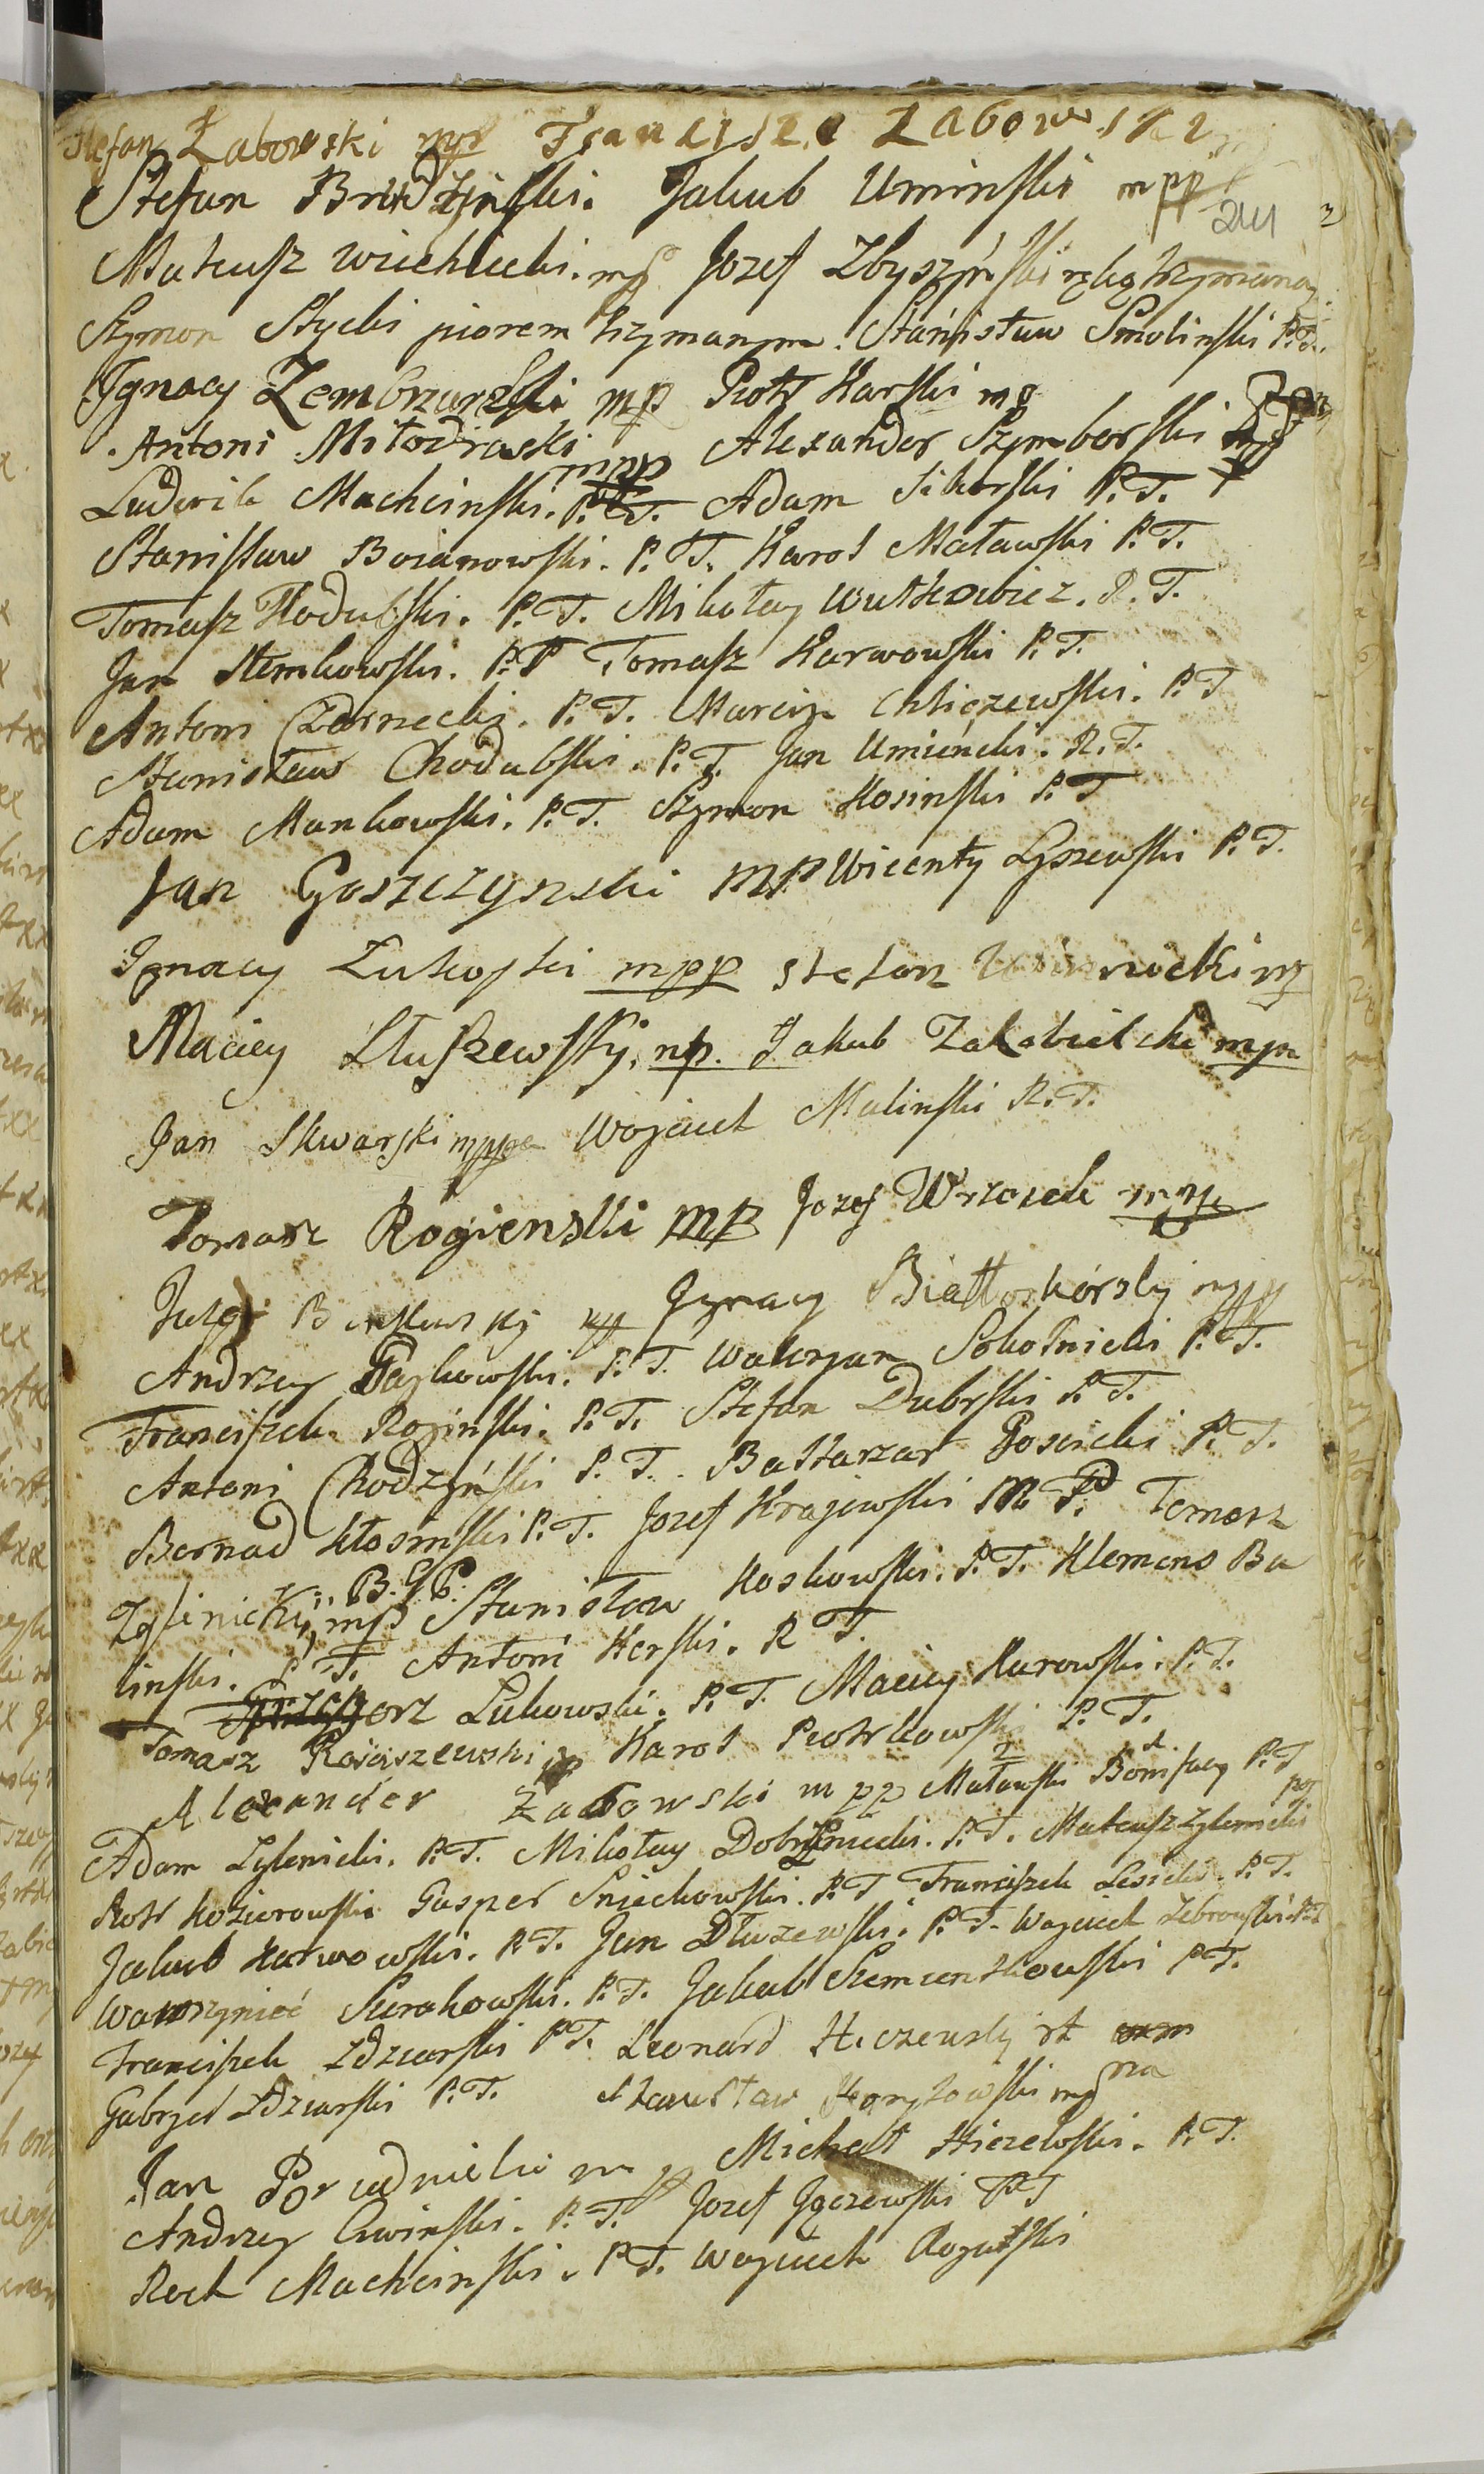 Stefan Żaborski mp Franciszek Zabowski
Stefan Brudzynski. Jakub Uminski mpp
241
Mateusz Wiechlicki. mp Jozef Zbyszyński ręką trzymaną
Szymon Stycki piorem trzymanym. Stanisław Smolinski P.T.
Ignacy Zembrzuski mp Piotr Karski mp
Antoni Miłodroski mpp Alexander Szymborski
Ludwik Machcinski. P.T. Adam Sikorski P.T.
Stanisław Boianowski. P.T. Karol Maławski P.T.
Tomasz Hodubski. P.T. Mikołay Wutkowicz. P.T.
Jan Stemkowski. P.T Tomasz Karwowski P.T.
Antoni Czarnecki. P.T. Marcin Chliczewski. P.T
Stanisław Chodubski. P.T. Jan Umieński. P.T.
Adam Mankowski. P.T. Szymon Kosinski P.T
Jan Goszczynski mp Wicenty Łyszewski P.T.
Ignacy Lutoski mpp Stefan
Maciey Słuszewsky, mp. Jakub Zakabielski mpr
Jan Skwarski mppa Woyciech Malinski P.T.
Tomasz Rogienski mp Jozef Wrzosek mp
Ignacy Białłoskórsky mpp
Andrzey Paykowski. P.T. Waleryan Sokolnicki P.T.
Franciszek Roginski. P.T. Stefan Dubrski P.T.
Antoni Chodzyński P.T. Baltarzar Gosicki P.T.
Bernad Kłosinski P.T. Jozef Krajewski M.P. Tomasz
Żylinicki, mp B.G.P. Stanisław Koskowski. P.T. Klemens Ba
linski. P.T. Antoni Kerski. P.T.
Grzegorz Lukowski. P.T. Maciey Kurowski. P.T.
Tomasz Rościszewski mp Karol Piotrkowski P.T.
Alexander Zabowski mpp Maławski Bonifacy P.T
Adam Zylenicki. P.T. Mikołay Dobrzeniecki. P.T. Mateusz Zylenicki
Piotr Kozierowski Gasper Sniechowski. P.T Franciszek Lesicki. P.T.
Jakub Karwowski. P.T. Jan Dłużewski. P.T. Woyciech Zebrowski P.T
Wawrzyniec Sierakowski. P.T. Jakub Siemientkowski P.T.
Franciszek Zdziarski P.T. Leonard Kiczensky
Gabryel Zdziarski P.T. Stanisław Karytowski mp
Jan Poradnicki mp Michał Kiczelski. P.T.
Andrzey Cwinski. P.T. Jozef Jgczewski P.T
Roch Machcinski. P.T. Woyciech Rogulski